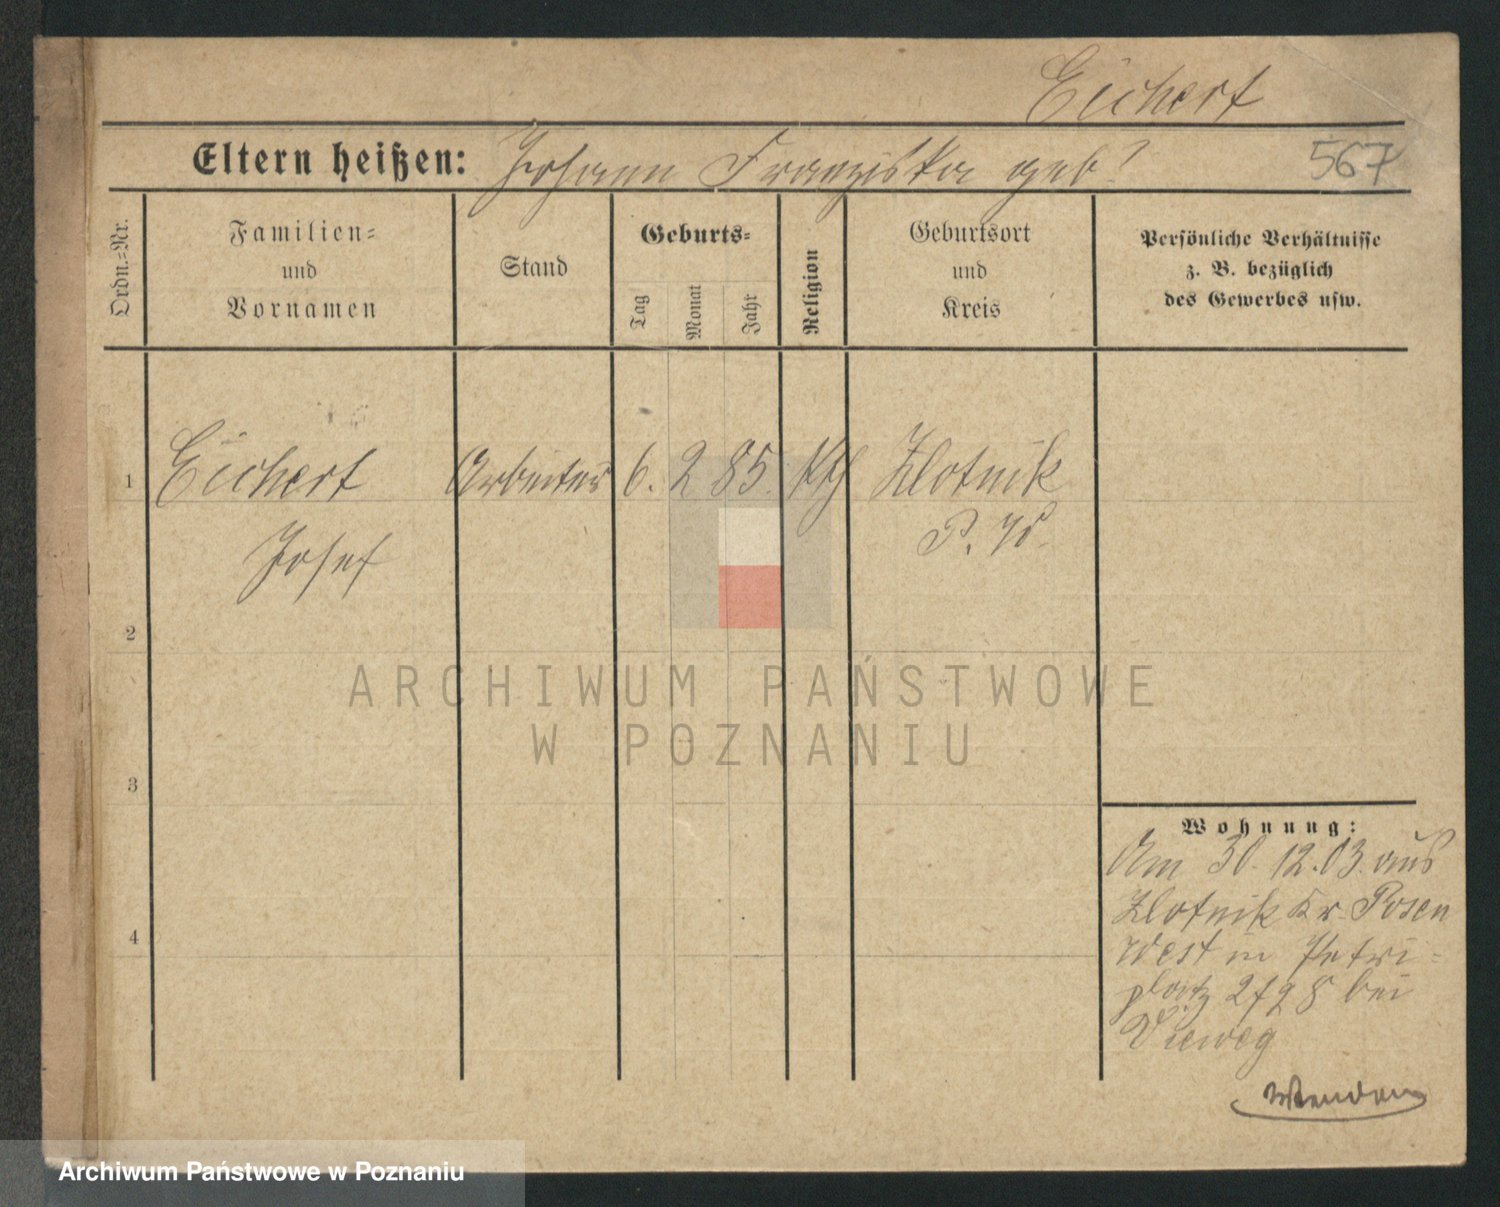 Eichert
Eltern heißen: Johann Franziska geb?
567
Ordn.=Nr.
Familien=
und
Vornamen
Stand
Geburts=
Tag
Monat
Jahr
Religion
Geburtsort
und
Kreis
Persönliche Verhältnisse
z. B. bezüglich
des Gewerbes usw.
1 Eichert Arbeiter 6. 2 85. kth Zlotnik
Josef P. W.
2
ARCHIWUM PAŃSTWOWE
W POZNANIU
3
Wohnung:
Am 30.12.03. aus
Zlotnik Kr. Posen
4
West in Petri=
platz 2 bei
Vieweg
Archiwum Państwowe w Poznaniu